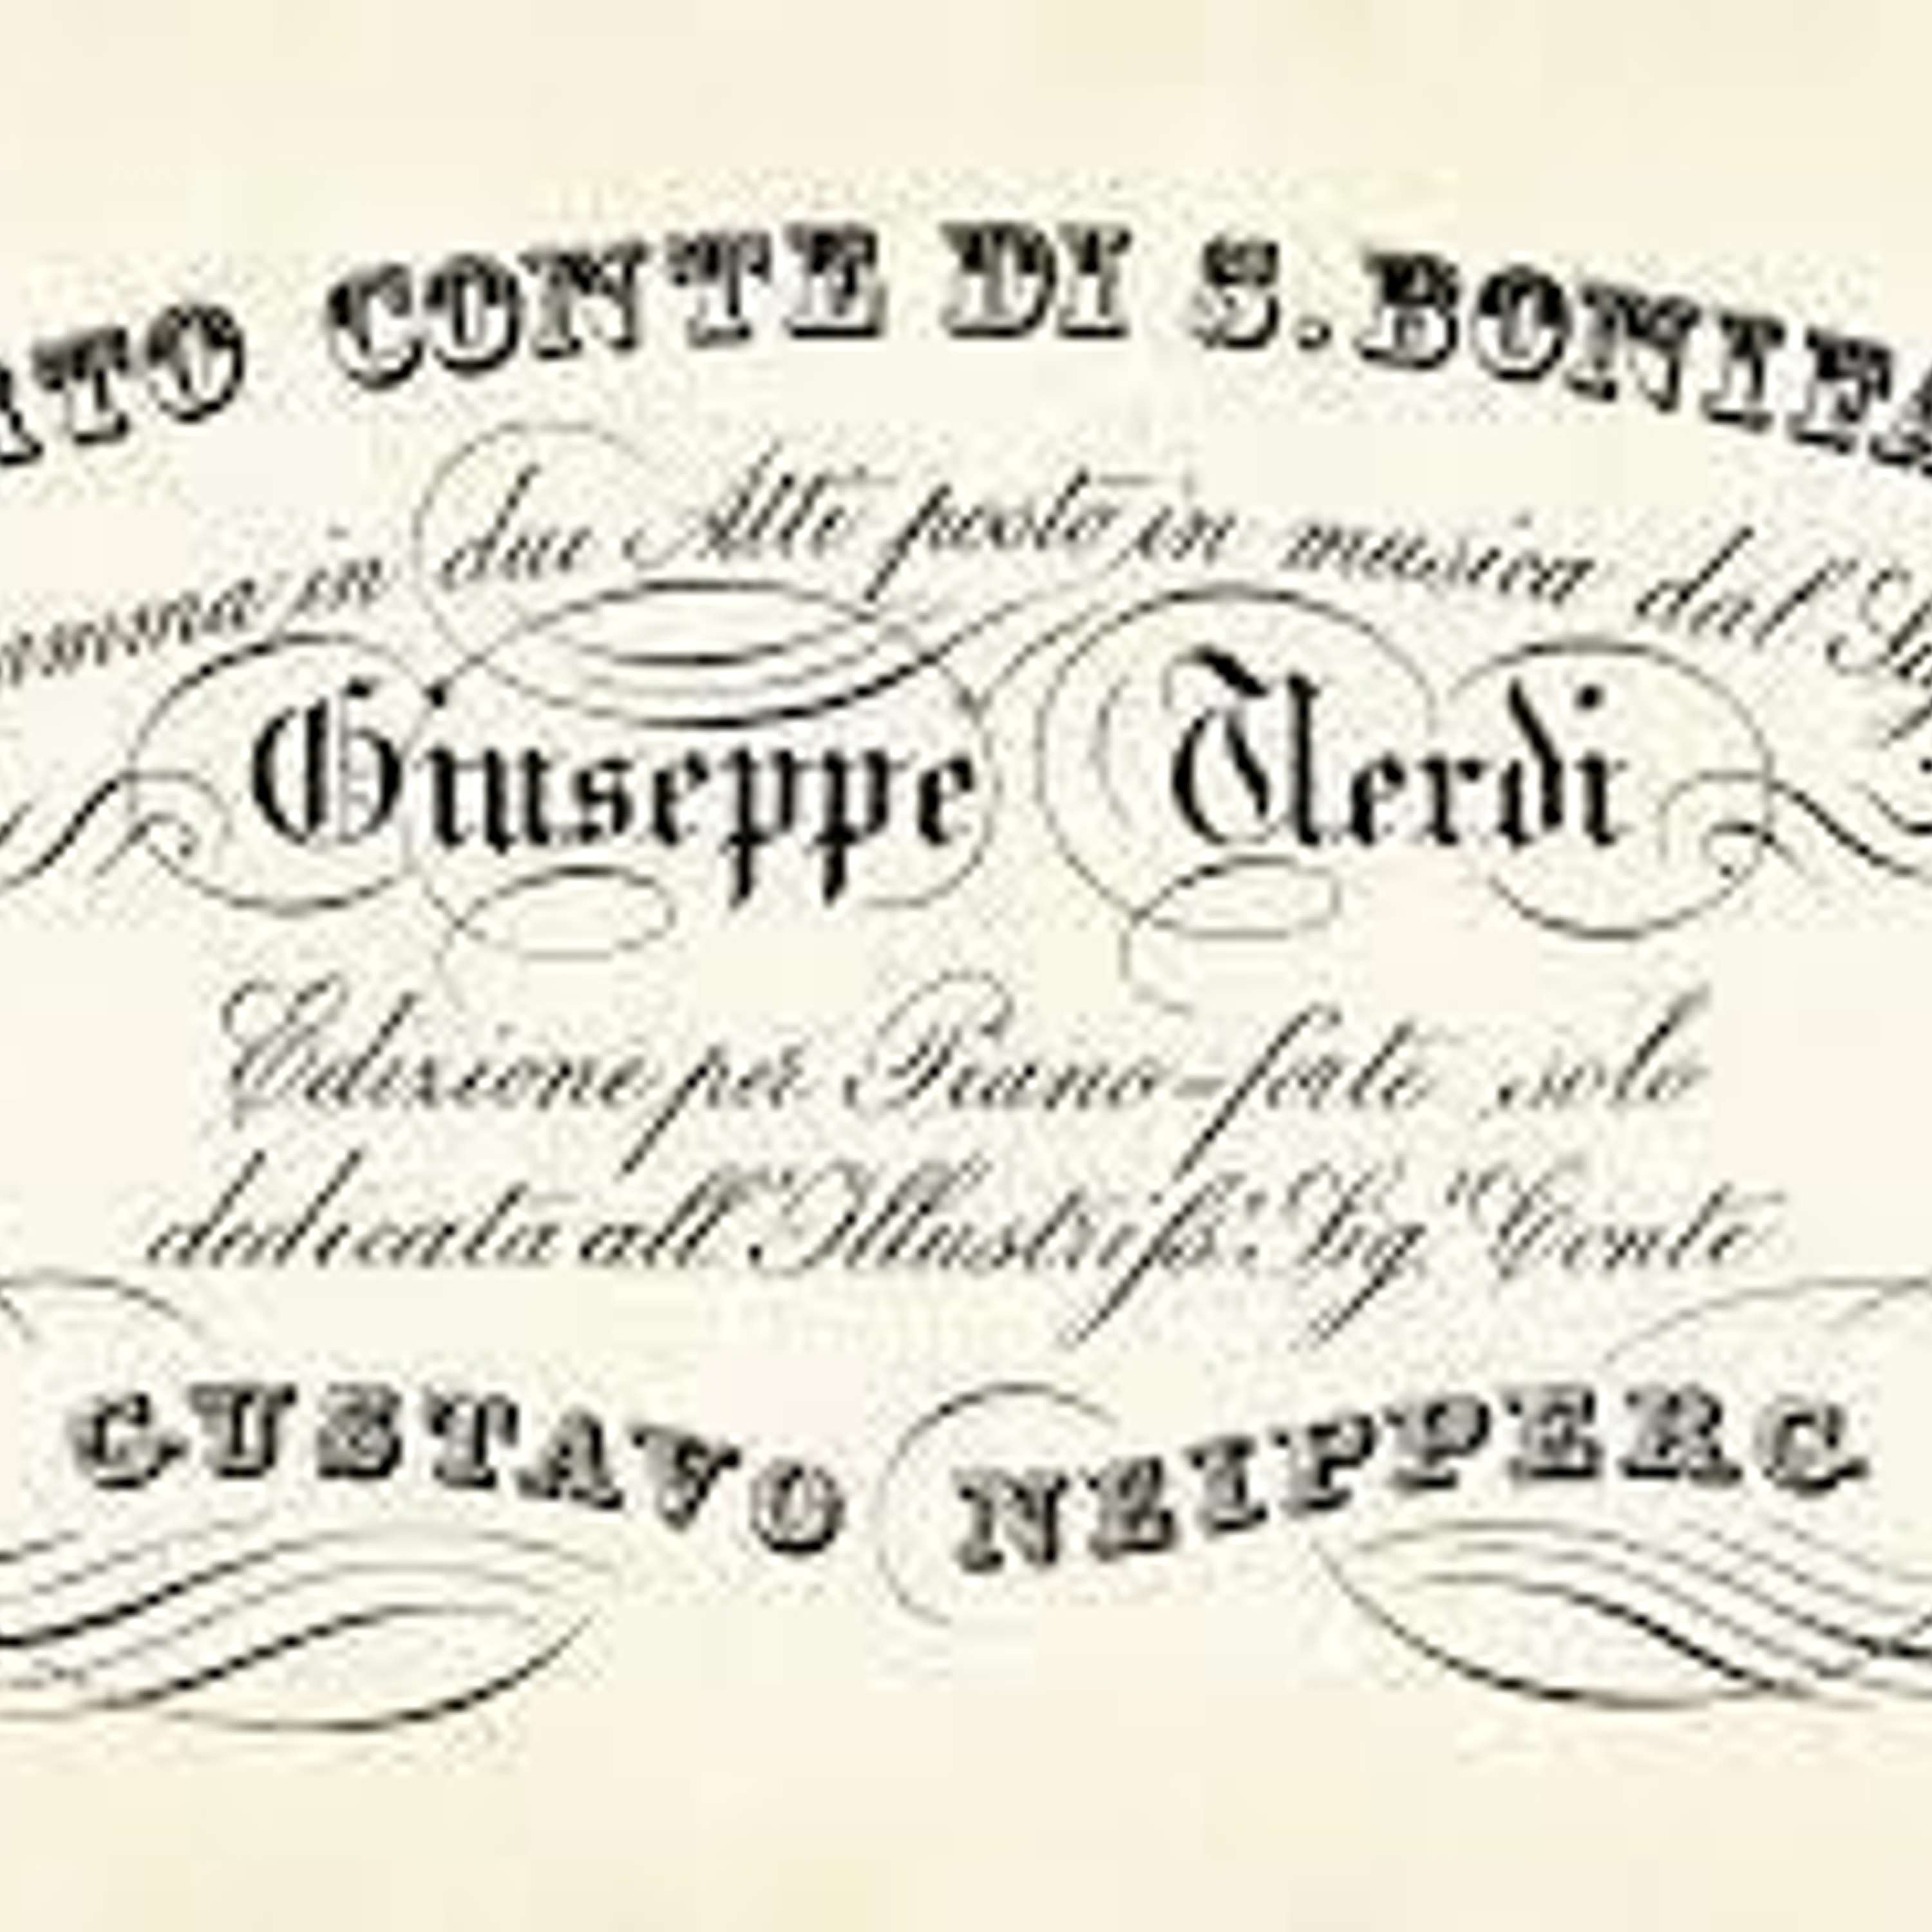 TO CONTE DI S. BONIFA
in due Atti posto in musica dal Sig
Giuseppe Verdi
Edizione per Piano-forte solo
dedicata all'Illustriss. Sig. Conte
GUSTAVO NEIPPERG